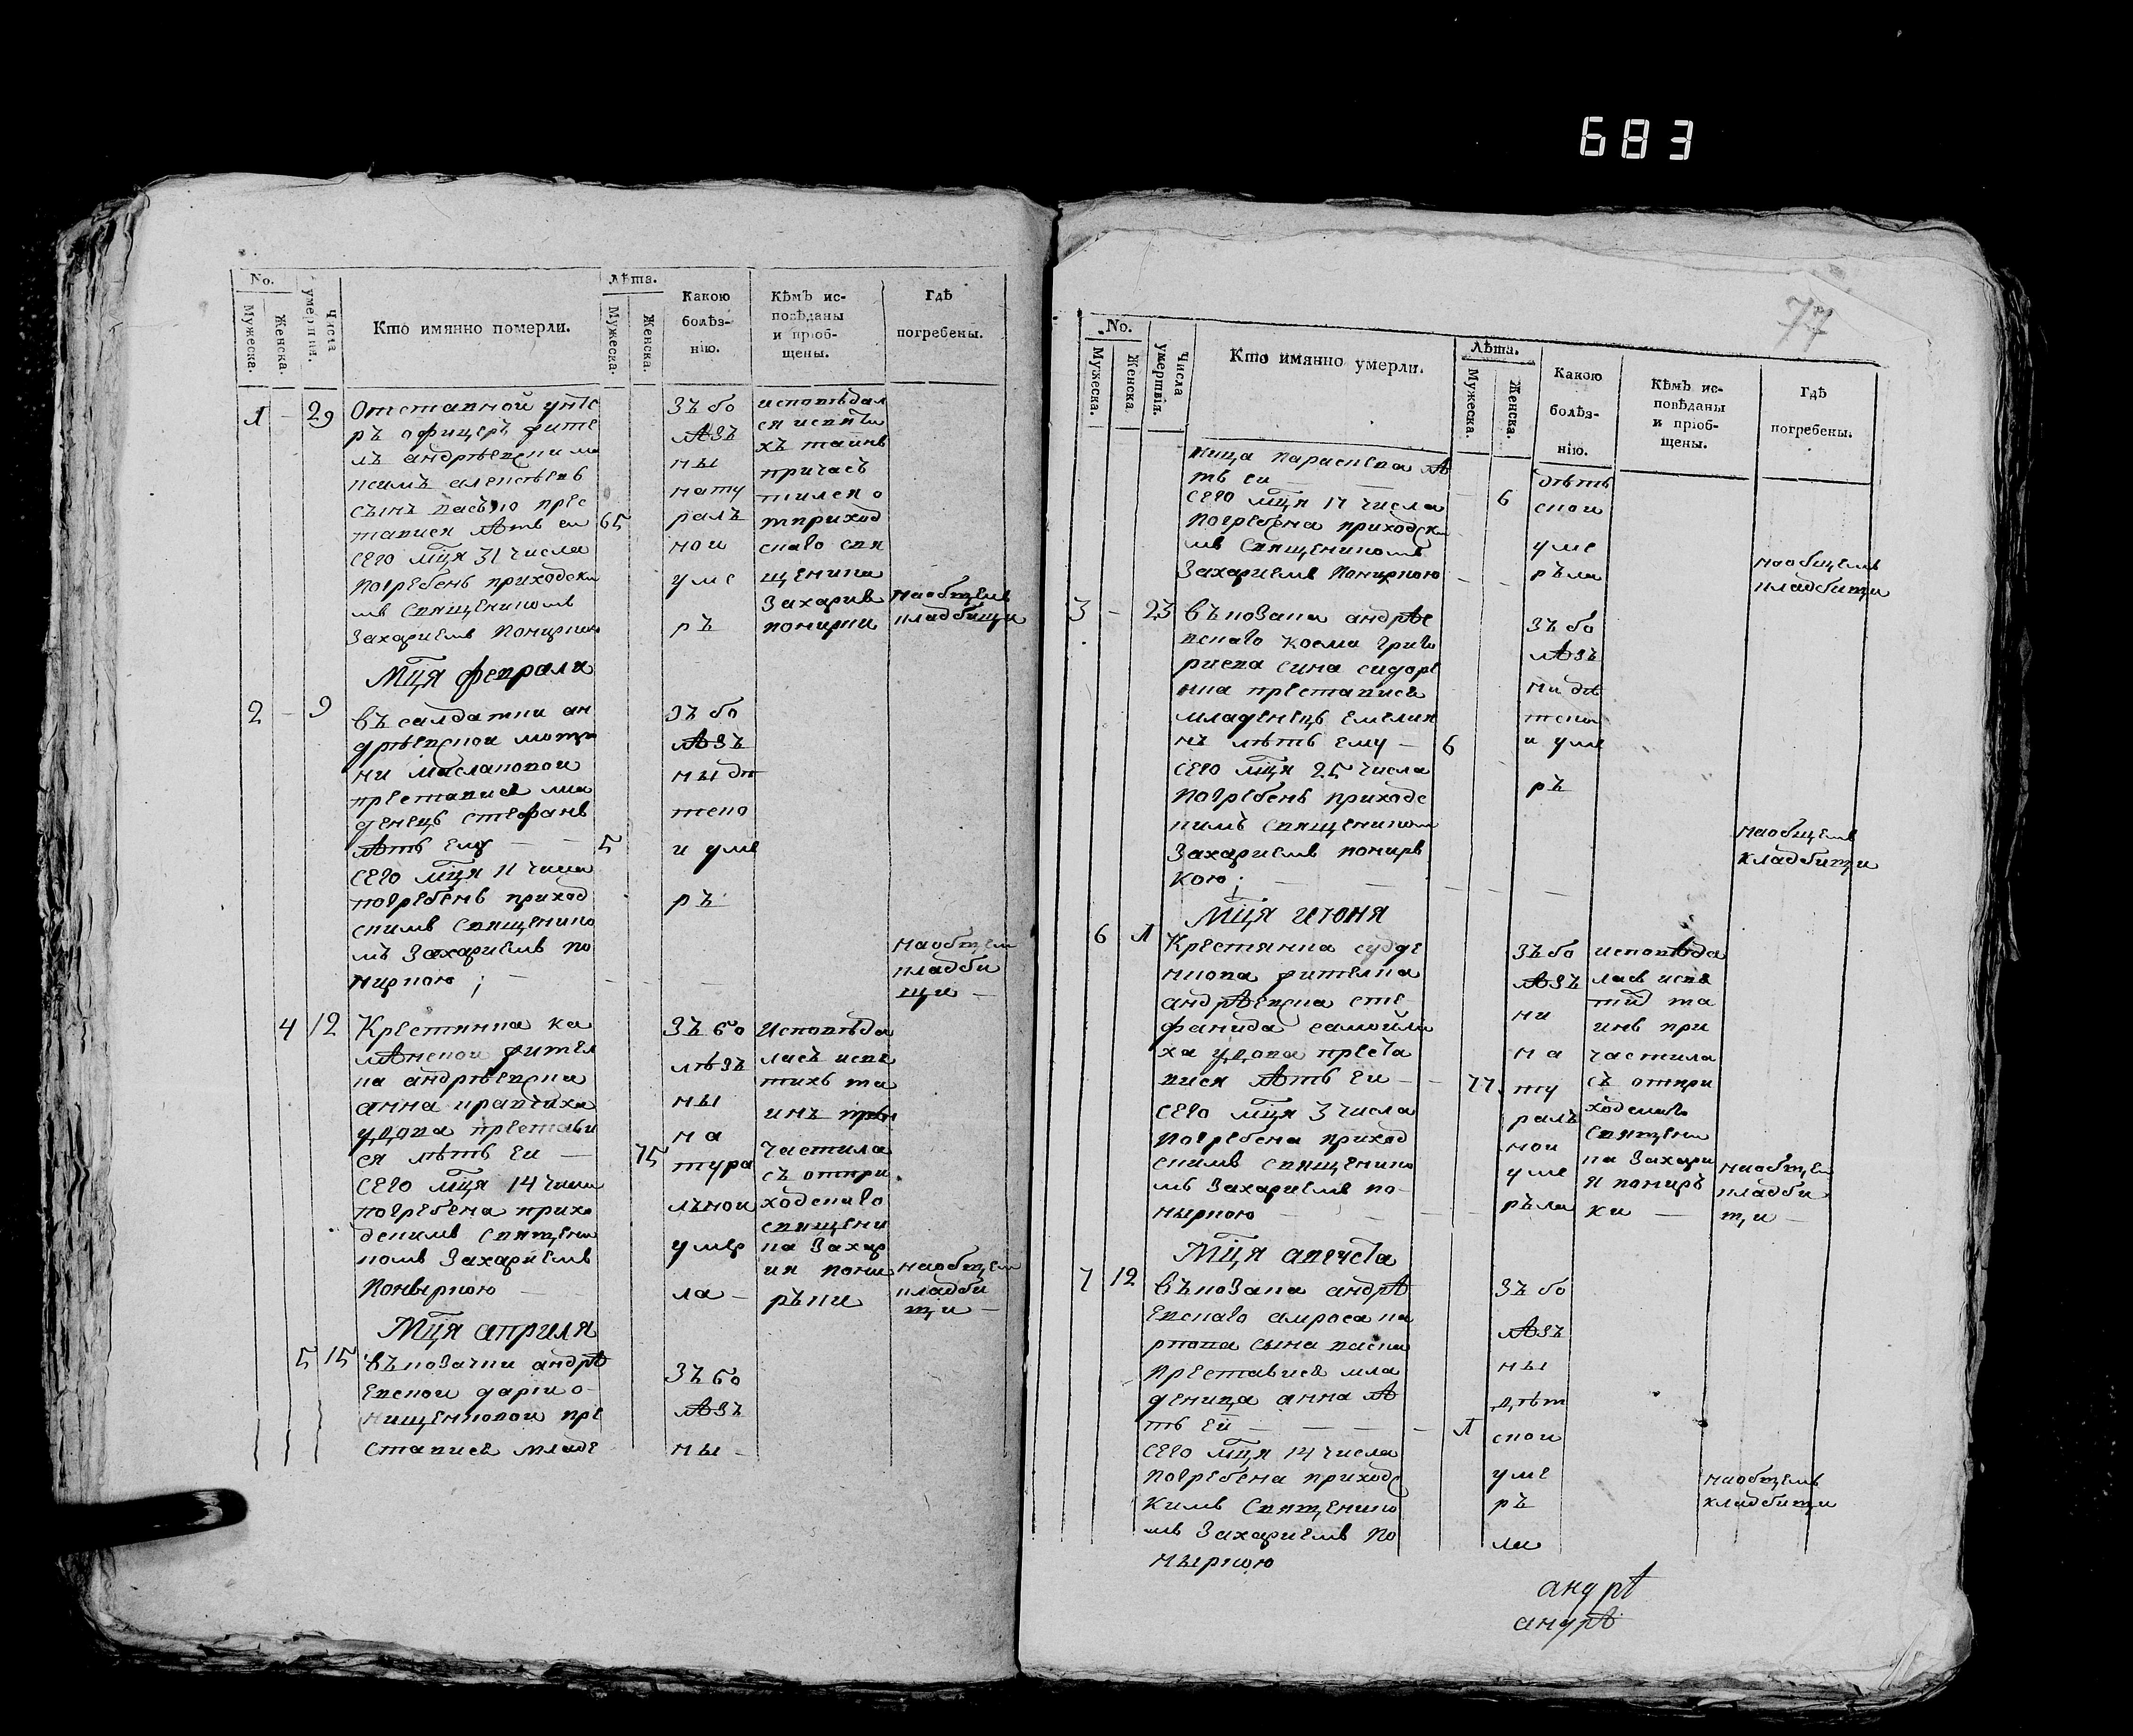 683
77
No.
Мужеска.
Женска.
Числа умертвія.
Кто имянно померли.
Лѣта.
Мужеска.
Женска.
Какою
болѣз-
нію.
Кѣмъ ис-
повѣданы
и пріоб-
щены.
Гдѣ
погребены.
1 - 29
Отставной унте
ръ офицеръ
андрѣевски ма
престависъ
тависи лѣтъ ем 65
сего мця 31 числа
погребенъ приходски
мъ священикомъ
Захариемъ
зъ бо
лѣзъ
ны
нату
ралъ
нои
уме
ръ
исповѣдал
ся исвяты
хъ таинъ
причасъ
тилсяо
тприход
скаго свя
щеника
Захария
наобщемъ
кладбищи
Мця февраля
2 - 9
въ салдатки ан
дрѣевскои
престависъ мла
денецъ стефанъ
лѣтъ ему - 5
сего мця 11 числа
погребенъ приход
скимъ священико
мъ Захариемъ По
зъ бо
лѣзъ
ны дѣ
тско
и уме
ръ
наобщем
кладби
щи
4 12
Крестянка ка
андрѣевска
анна
удова престави
ся лѣтъ еи - 75
сего мця 14 числа
погребена прихо
дскимъ священи
комъ Захариемъ
зъ бо
лѣзъ
ны
на
тура
лънои
умер
ла -
исповѣда
ласъ исвя
тихъ та
инъ при
частила
съ отпри
ходскаго
священи
ка Захар
ия
наобщем
кладби
щи -
Мця априля
5 15
въ козачки андрѣ
евскои дарии о-
нищенковои пре
стависъ младе
зъ бо
лѣзъ
ны -
No.
Мужеска.
Женска.
Числа умертвія.
Кто имянно умерли.
Лѣта.
Мужеска.
Женска.
Какою
болѣз-
нію.
Кѣмъ ис-
повѣданы
и пріоб-
щены.
Гдѣ
погребены.
ница параскева лѣ
тъ еи 6
сего мця 17 числа
погребена приходски
мъ священикомъ
Захариемъ
дѣтъ
скои
уме
рьла
наобщемъ
кладбищи
3 - 23
въ козака андрѣе
вскаго косми григо
риева сина сидоре
нка престависъ
младенецъ емелия
нъ лѣтъ ему - 6
сего мця 25 числа
погребенъ приходс
кимъ священиком
Захариемъ
кою;
зъ бо
лѣзъ
ни дѣ
тско
и уме
ръ
наобщемъ
кладбищи
Мця июня
6 1
Крестянка
андрѣевска сте
фанида самойли
ха удова преста
вися лѣтъ еи - 77
сего мця 3 числа
погребена приход
скимъ священико
мъ Захариемъ по-
ныркою
зъ бо
лѣзъ
ни
на
ту
ралъ
нои
уме
рьла
исповѣда
ласъ исвя
тій та
инъ при
частила
съ отпри
ходскаго
священи
ка Захари
я понирь
ки -
наобщем
кладби
щи -
Мця августа
7 12
въ козака андрѣ
евскаго
сына
преставися мла
деница анна лѣ
тъ ей - 1
сего мця 14 числа
погребена приходс
кимъ священико
мъ Захариемъ По
ныркою
зъ бо
лѣзъ
ны
дѣт
скои
уме
ръ
ла
наобщемъ
кладбищи
андрѣ
андрѣ